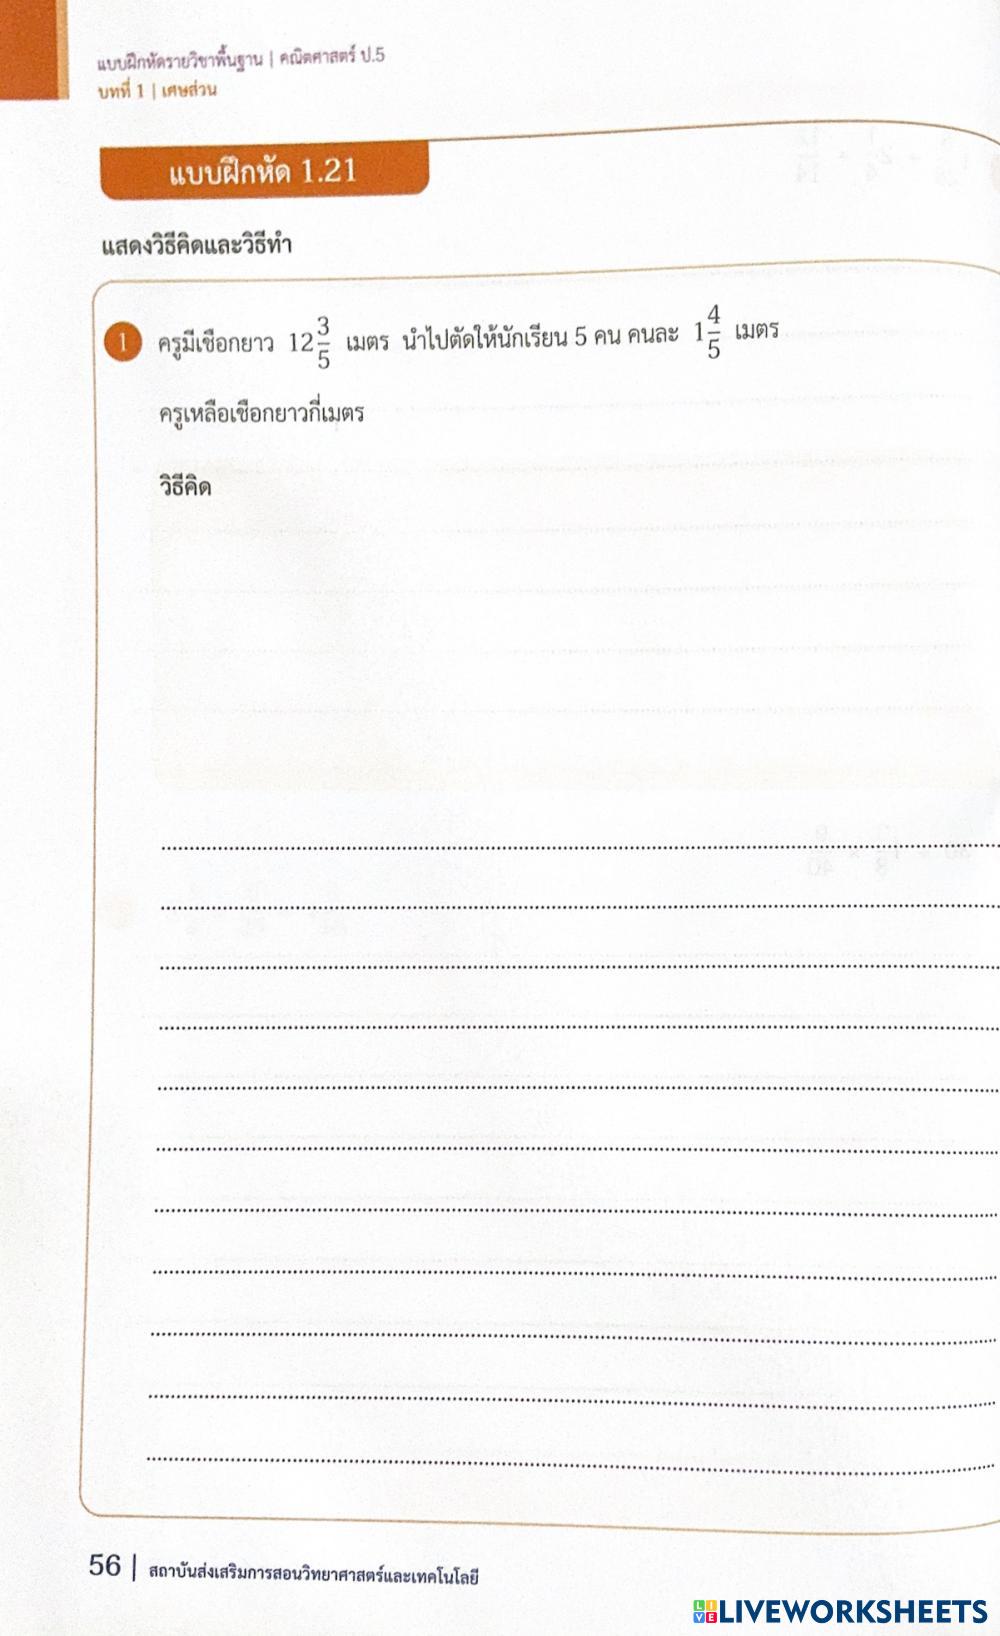 แบบฝึกหัดรายวิชาพื้นฐาน | คณิตศาสตร์ ป.5
บทที่ 1 | เศษส่วน
แบบฝึกหัด 1.21
แสดงวิธีคิดและวิธีทำ
1 ครูมีเชือกยาว 12 3/5 เมตร นำไปตัดให้นักเรียน 5 คน คนละ 1 4/5 เมตร
ครูเหลือเชือกยาวกี่เมตร
วิธีคิด
56 | สถาบันส่งเสริมการสอนวิทยาศาสตร์และเทคโนโลยี
LIVE LIVEWORKSHEETS